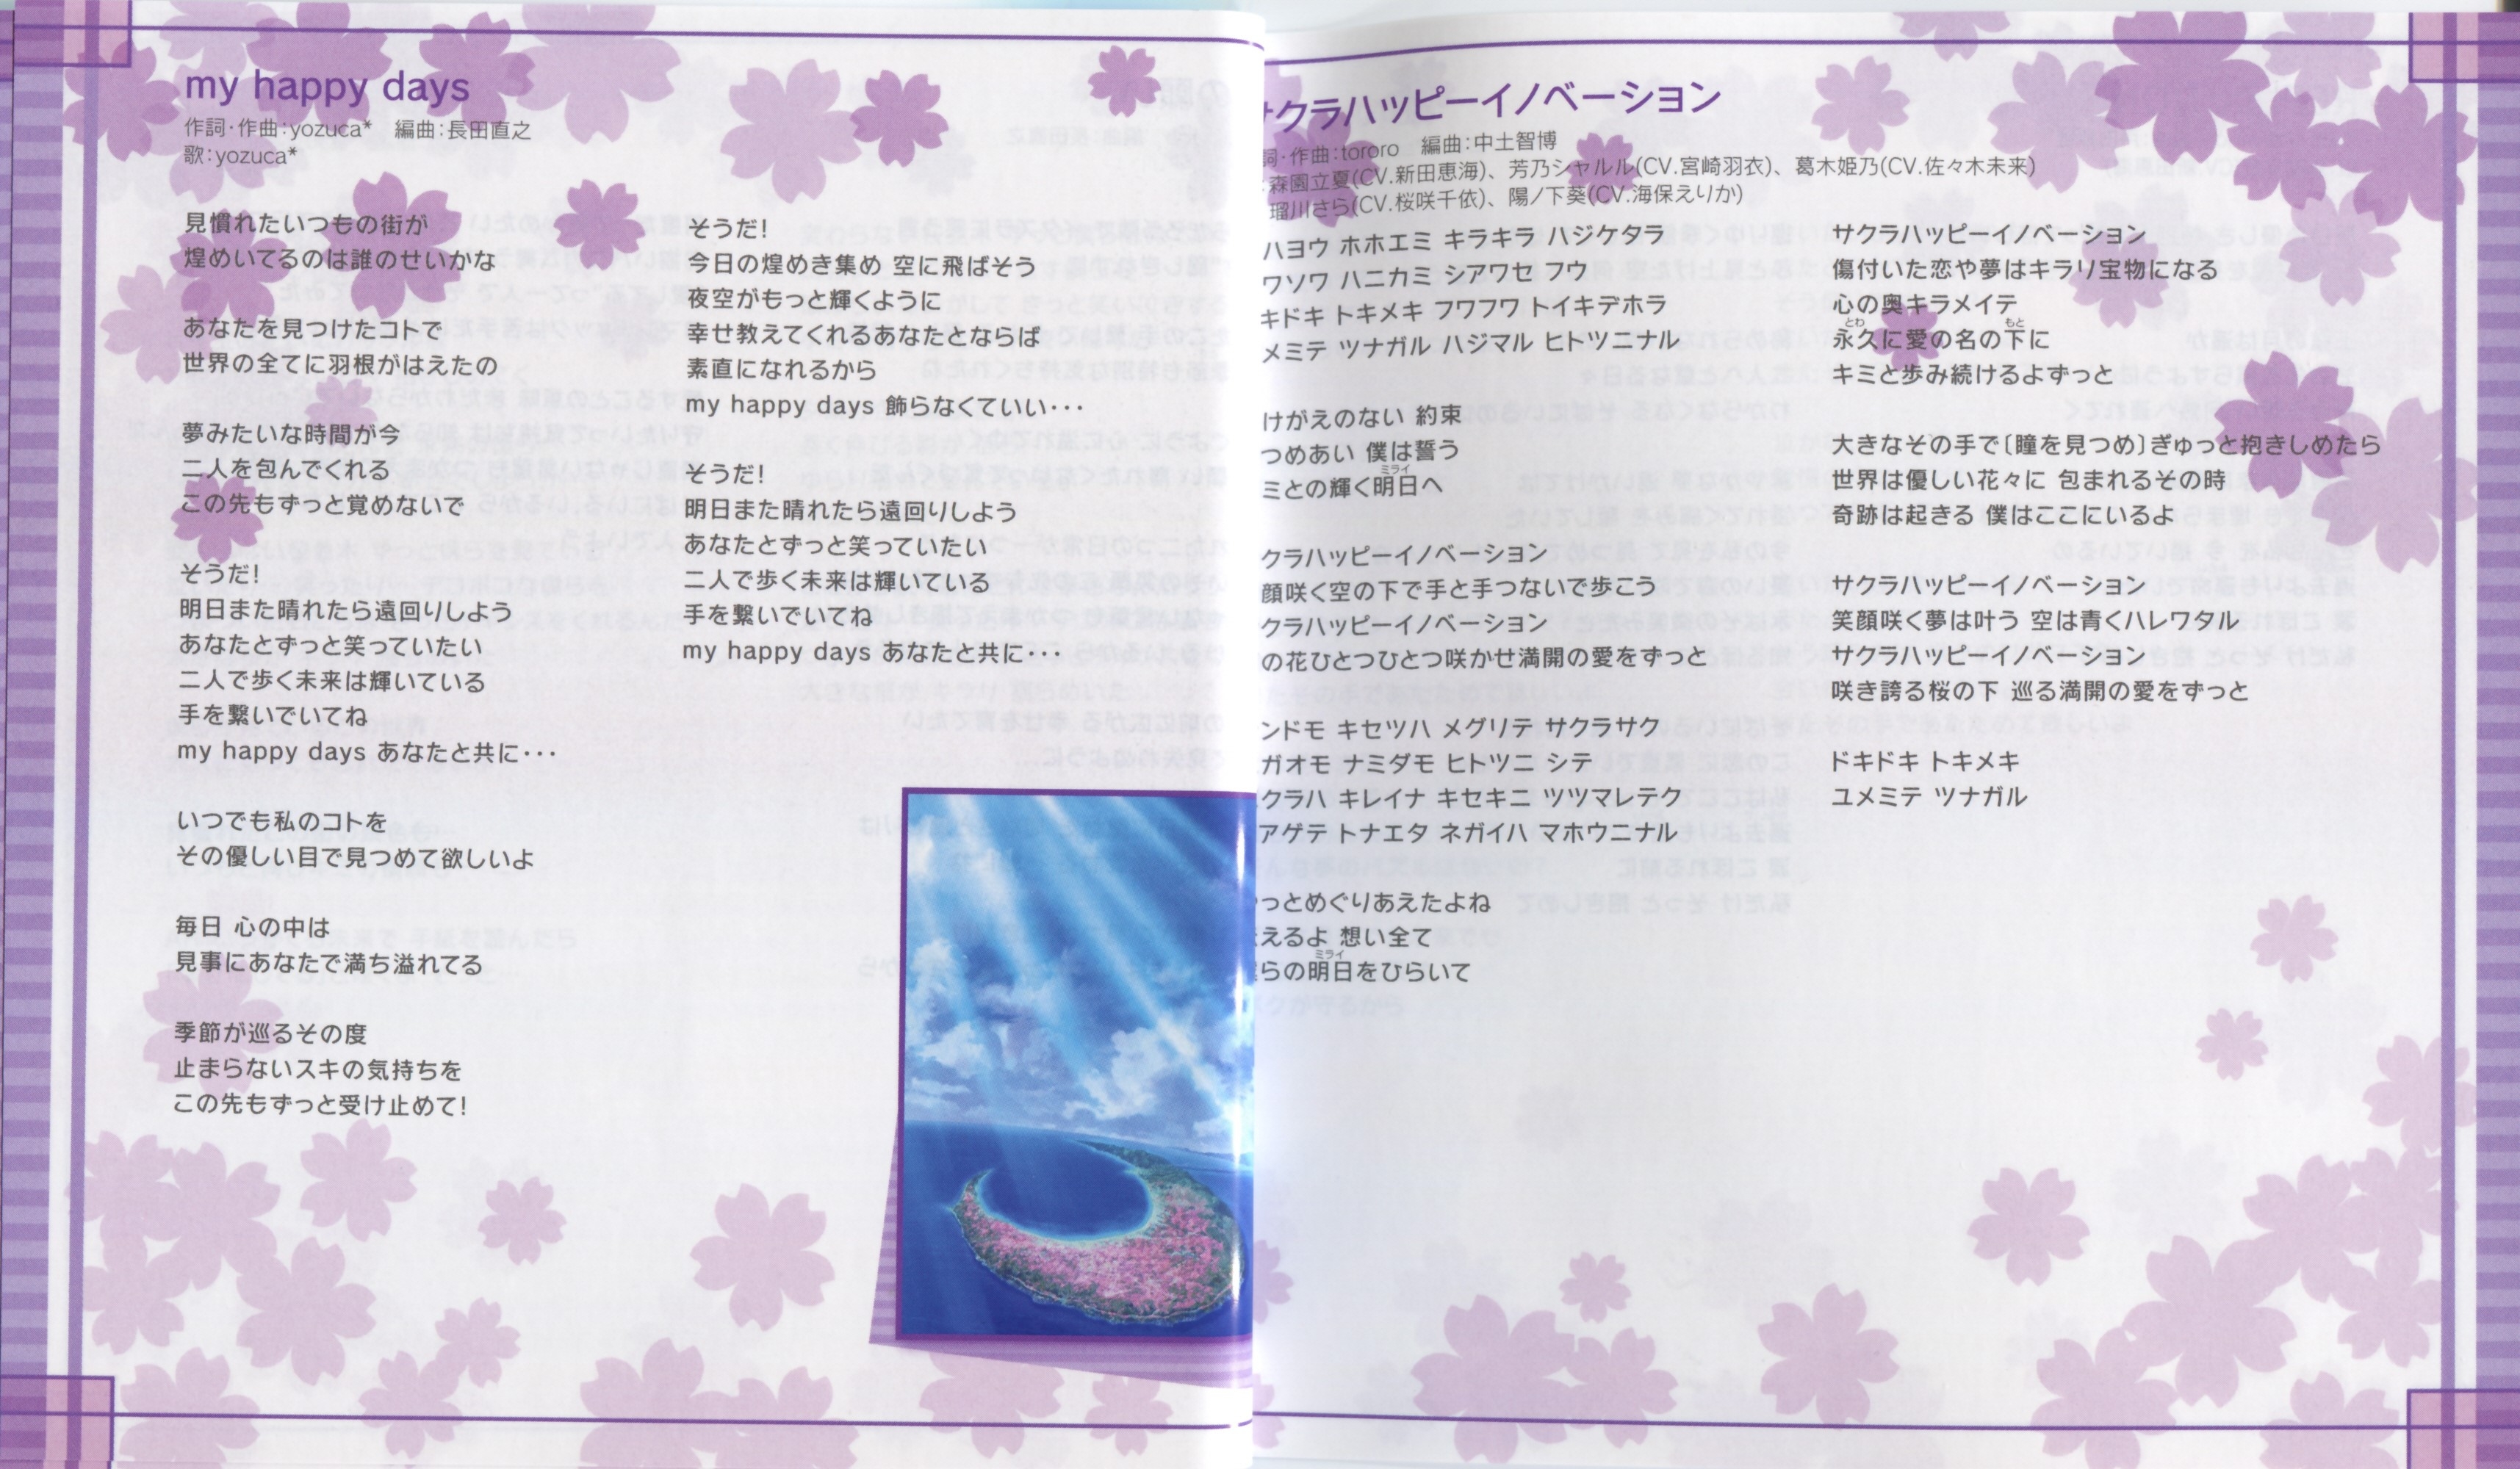 my happy days
作詞・作曲:yozuca*　編曲:長田直之
歌:yozuca*
見慣れたいつもの街が
煌めいてるのは誰のせいかな
あなたを見つけたコトで
世界の全てに羽根がはえたの
夢みたいな時間が今
二人を包んでくれる
この先もずっと覚めないで
そうだ!
明日また晴れたら遠回りしよう
あなたとずっと笑っていたい
二人で歩く未来は輝いている
手を繋いでいてね
my happy days あなたと共に・・・
いつでも私のコトを
その優しい目で見つめて欲しいよ
毎日 心の中は
見事にあなたで満ち溢れてる
季節が巡るその度
止まらないスキの気持ちを
この先もずっと受け止めて!
そうだ!
今日の煌めき集め 空に飛ばそう
夜空がもっと輝くように
幸せ教えてくれるあなたとならば
素直になれるから
my happy days 飾らなくていい・・・
そうだ!
明日また晴れたら遠回りしよう
あなたとずっと笑っていたい
二人で歩く未来は輝いている
手を繋いでいてね
my happy days あなたと共に・・・
サクラハッピーイノベーション
詞・作曲:tororo　編曲:中土智博
森園立夏(CV.新田恵海)、芳乃シャルル(CV.宮崎羽衣)、葛木姫乃(CV.佐々木未来)
瑠川さら(CV.桜咲千依)、陽ノ下葵(CV.海保えりか)
ハヨウ ホホエミ キラキラ ハジケタラ
ワソワ ハニカミ シアワセ フウ
キドキ トキメキ フワフワ トイキデホラ
メミテ ツナガル ハジマル ヒトツニナル
けがえのない 約束
つめあい 僕は誓う
ミとの輝く明日へ
ミライ
クラハッピーイノベーション
顔咲く空の下で手と手つないで歩こう
クラハッピーイノベーション
の花ひとつひとつ咲かせ満開の愛をずっと
ンドモ キセツハ メグリテ サクラサク
ガオモ ナミダモ ヒトツニ シテ
クラハ キレイナ キセキニ ツツマレテク
アゲテ トナエタ ネガイハ マホウニナル
っとめぐりあえたよね
えるよ 想い全て
らの明日をひらいて
ミライ
サクラハッピーイノベーション
傷付いた恋や夢はキラリ宝物になる
心の奥キラメイテ
永久に愛の名の下に
とわ もと
キミと歩み続けるよずっと
大きなその手で〔瞳を見つめ〕ぎゅっと抱きしめたら
世界は優しい花々に 包まれるその時
奇跡は起きる 僕はここにいるよ
サクラハッピーイノベーション
笑顔咲く夢は叶う 空は青くハレワタル
サクラハッピーイノベーション
咲き誇る桜の下 巡る満開の愛をずっと
ドキドキ トキメキ
ユメミテ ツナガル